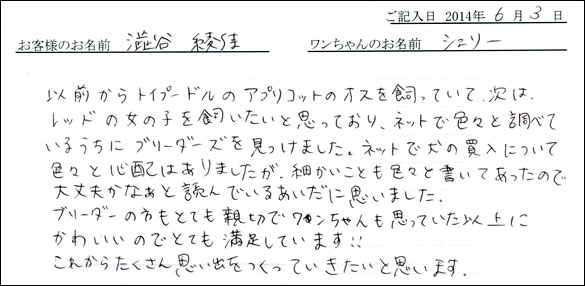 ご記入日 2014年 6月 3日
お客様のお名前 澁谷 綾佳 ワンちゃんのお名前 シェリー
以前からトイプードルのアプリコットのオスを飼っていて、次は、
レッドの女の子を飼いたいと思っており、ネットで色々と調べて
いるうちにブリーダーズを見つけました。ネットで犬の買入について
色々と心配はありましたが、細かいことも色々と書いてあったので
大丈夫かなぁと読んでいるあいだに思いました。
ブリーダーの方もとても親切でワンちゃんも思っていた以上に
かわいいのでとても満足しています!!
これからたくさん思い出をつくっていきたいと思います。